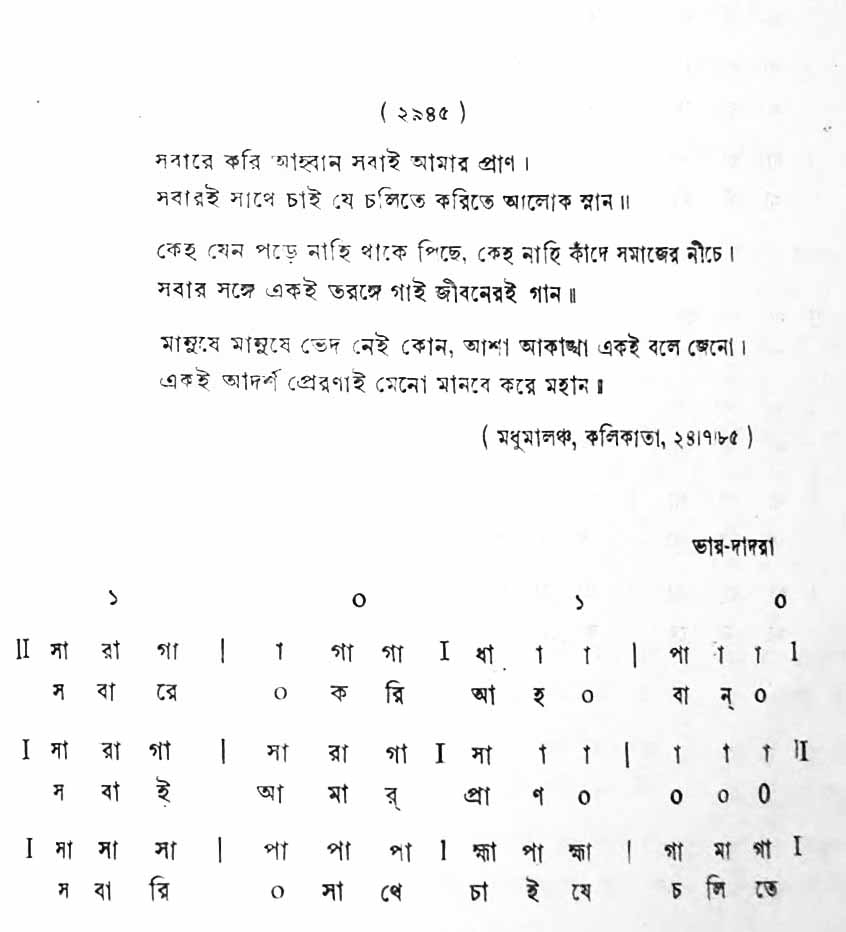 ( ২৯৪৫ )
সবারে করি আহ্বান সবাই আমার প্রাণ ।
সবারই সাথে চাই যে চলিতে করিতে আলোক স্নান॥
কেহ যেন পড়ে নাহি থাকে পিছে, কেহ নাহি কাঁদে সমাজের নীচে ।
সবার সঙ্গে একই তরঙ্গে গাই জীবনেরই গান ॥
মানুষে মানুষে ভেদ নেই কোন, আশা আকাঙ্খা একই বলে জেনো ।
একই আদর্শ প্রেরণাই মেনো মানবে করে মহান ॥
( মধুমালঞ্চ, কলিকাতা, ২৪।৭।৮৫ )
তাল-দাদরা
১ ০ ১ ০
II সা রা গা | া গা গা I ধা া া | পা া া I
স বা রে ০ ক রি আ হ ০ বা ন্ ০
I সা রা গা | সা রা গা I সা া া | া া া II
স বা ই আ মা র্ প্রা ণ ০ ০ ০ ০
I সা সা সা | পা পা পা I হ্মা পা হ্মা | গা মা গা I
স বা রি ০ সা থে চা ই যে চ লি তে